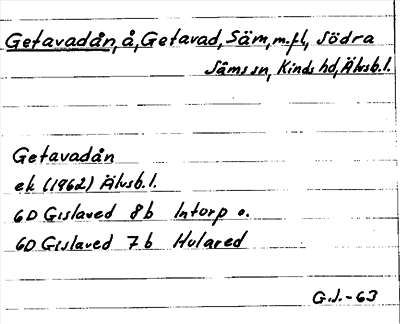 Getavadån, å, Getavad, Säm, m.fl, Södra
Säms sn, Kinds hd, Älvsb.l.
Getavadån
ek (1962) Älvsb.l.
6D Gislaved 8b Intorp o.
6D Gislaved 7b Hulared
G.J.-63